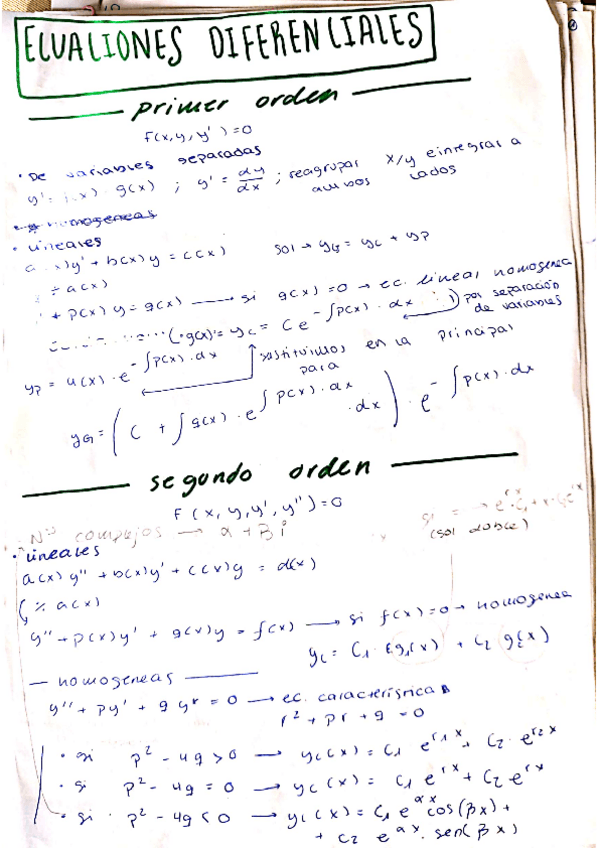 ECUACIONES DIFERENCIALES
primer orden
F(x, y, y') = 0
• De variables separadas
y' = f(x) · g(x) ; y' = dy/dx ; reagrupar x/y e integrar a ambos lados
homogeneas
• Lineales
a(x)y' + b(x)y = c(x)   sol → yG = yc + yp
÷ a(x)
+ p(x) y = g(x) → si g(x) = 0 → ec. lineal homogenea
yc = C e^-∫p(x)·dx   por separación de variables
yp = u(x) · e^-∫p(x)·dx   sustituimos en la principal para
yG = ( C + ∫ g(x) · e^∫p(x)·dx · dx ) · e^-∫p(x)·dx
segundo orden
F (x, y, y', y'') = 0
Nºs complejos → α + βi   si = → e^rx · C1 + x · C2 e^rx
(sol doble)
• Lineales
a(x) y'' + b(x)y' + c(x)y = d(x)
÷ a(x)
y'' + p(x)y' + g(x)y = f(x) → si f(x) = 0 → homogenea
yc = C1 · g1(x) + C2 g2(x)
— homogeneas —
y'' + py' + g y = 0 → ec. característica
r² + pr + g = 0
• si p² - 4g > 0 → yc(x) = C1 e^r1x + C2 · e^r2x
• si p² - 4g = 0 → yc(x) = C1 e^rx + C2 e^rx
• si p² - 4g < 0 → yc(x) = C1 e^αx cos(βx) +
+ C2 e^αx · sen(βx)